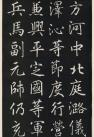 方河中北庭潞儀
澤沁等節度行營
兼興平定國等軍
兵馬副元師仍充